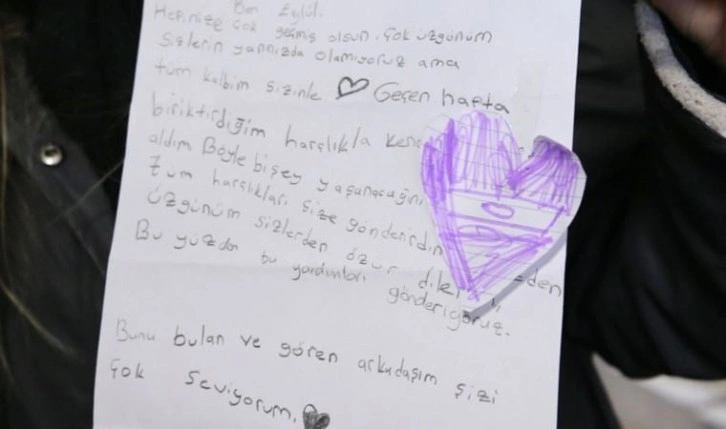 Ben Eylül.
Hepinize çok geçmiş olsun. Çok üzgünüm
sizlerin yanınızda olamıyoruz ama
tüm kalbim sizinle ♡ Geçen hafta
biriktirdiğim harçlıkla
aldım Böyle bişey yaşanacağını
tüm harçlıkları size gönderirdim
üzgünüm sizlerden özür
Bu yüzden bu yardımları gönderiyoruz.
Bunu bulan ve gören arkadaşım sizi
çok seviyorum.